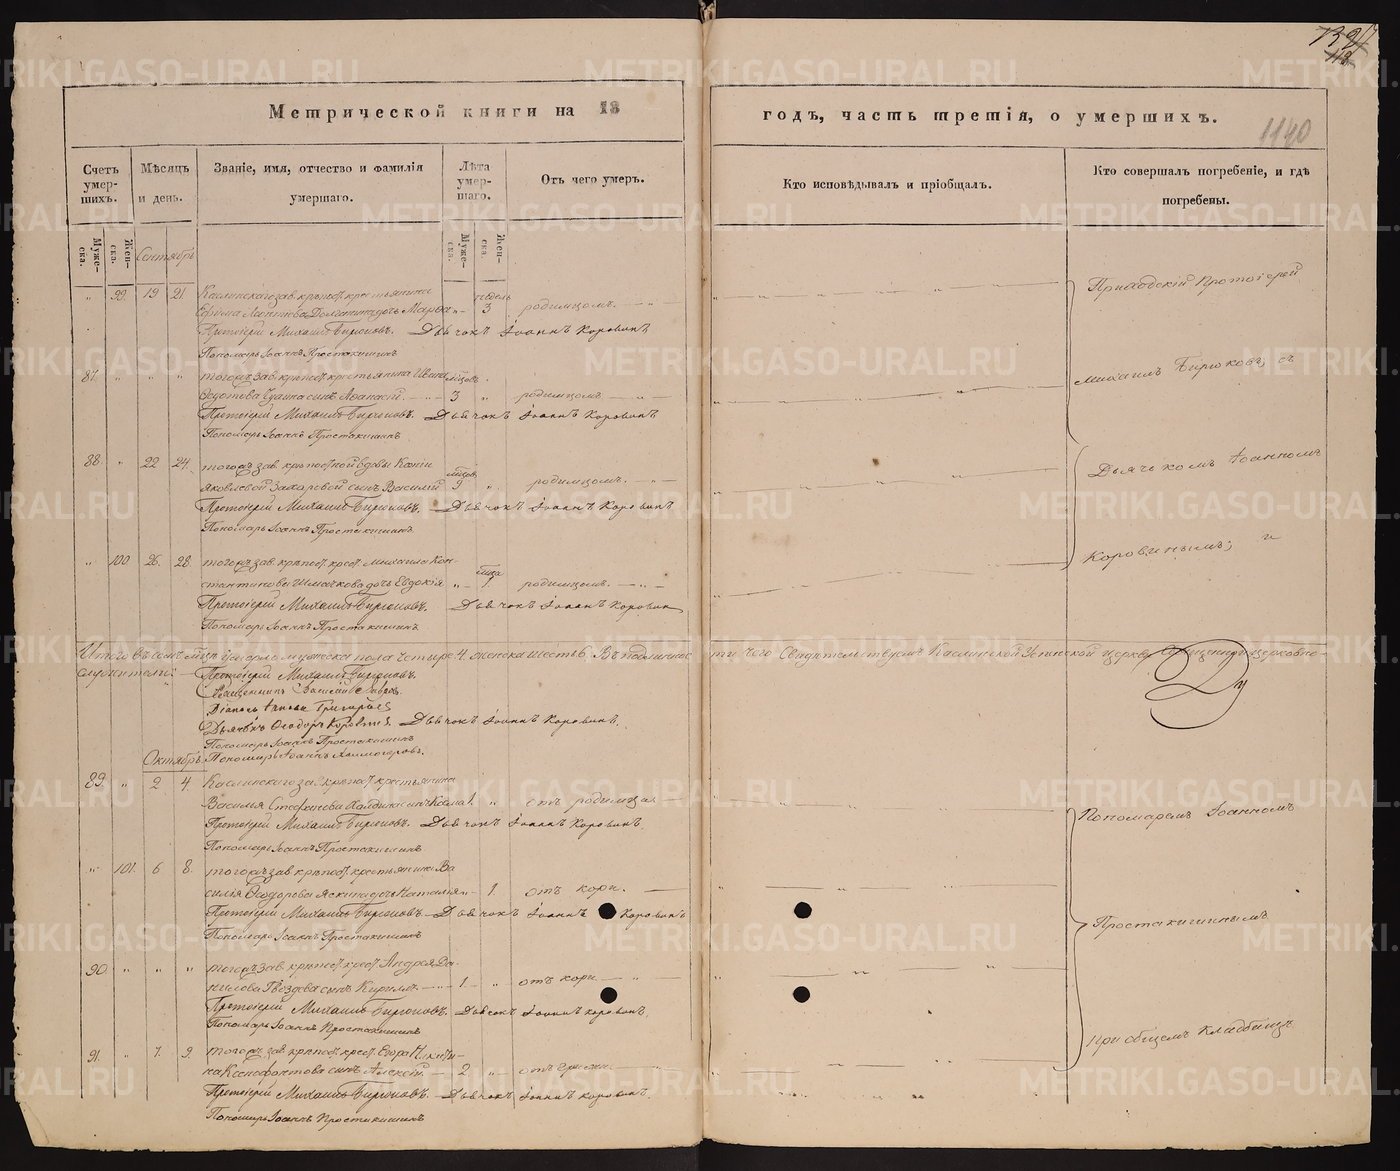 132
112
1140
Метрической книги на 18
годъ, часть третія, о умершихъ.
Счетъ умер-шихъ.
Мѣсяцъ и день.
Званіе, имя, отчество и фамилія умершаго.
Лѣта умер-шаго.
Отъ чего умеръ.
Кто исповѣдывалъ и пріобщалъ.
Кто совершалъ погребеніе, и гдѣ погребены.
Муже-ска.
Жен-ска.
Муже-ска.
Жен-ска.
Сентябрь
" 99. 19 21. Каслинскаго зав. крѣпост. крестьянина недѣль
Ефима Леонтьева дочь Марѳа " 3 родимцомъ.
Протоіерей Михаилъ Бирюковъ. Дьячокъ Іоаннъ Коровинъ
Пономарь Іоаннъ Простакишинъ
87. " " " тогожъ зав. крѣпост. крестьянина Ивана мѣсцовъ
сынъ Аѳанасій 3 " родимцомъ.
Протоіерей Михаилъ Бирюковъ. Дьячокъ Іоаннъ Коровинъ
Пономарь Іоаннъ Простакишинъ
88. " 22 24. тогожъ зав. крѣпостной вдовы Ксеніи мѣсцов.
Яковлевой Захаровой сынъ Василій 9 " родимцомъ.
Протоіерей Михаилъ Бирюковъ. Дьячокъ Іоаннъ Коровинъ
Пономарь Іоаннъ Простакишинъ
" 100 26. 28. тогожъ зав. крѣпост. крест. Михаила Кон-
стантинова дочь Евдокія " 1 родимцомъ.
Протоіерей Михаилъ Бирюковъ. Дьячокъ Іоаннъ Коровинъ
Пономарь Іоаннъ Простакишинъ
Приходскій Протоіерей
Михаилъ Бирюковъ, съ
Дьячькомъ Іоанномъ
Коровинымъ; и
Итого въ семъ мцѣ умерло мужеска пола четыре 4. женска шесть 6. Въ подлинно-сти чего свидѣтельствуемъ Каслинской Успенской церкви священноцерковно-
служители:
Протоіерей Михаилъ Бирюковъ.
Священникъ Василій
Діаконъ
Дьячекъ Ѳеодоръ Коровинъ. Дьячокъ Іоаннъ Коровинъ.
Пономарь Іоаннъ Простакишинъ
Пономарь Іоаннъ
Октябрь.
89. " 2 4. Каслинскаго зав. крѣпост. крестьянина
Василья Стефанова сынъ Козма 1. " отъ родимца.
Протоіерей Михаилъ Бирюковъ. Дьячокъ Іоаннъ Коровинъ.
Пономарь Іоаннъ Простакишинъ
" 101. 6 8. тогожъ зав. крѣпост. крестьянина Ва-
силія Ѳеодорова дочь Наталія " 1. отъ кори.
Протоіерей Михаилъ Бирюковъ. Дьячокъ Іоаннъ Коровинъ
Пономарь Іоаннъ Простакишинъ
90 " " " тогожъ зав. крѣпост. крест. Андрея Да-
нилова Гвоздева сынъ Кирилъ. 1. " отъ кори.
Протоіерей Михаилъ Бирюковъ. Дьячокъ Іоаннъ Коровинъ.
Пономарь Іоаннъ Простакишинъ
91. " 7. 9. тогожъ зав. крѣпост. крест. Егора Никити-
на Ксенофонтова сынъ Алексѣй. 2 "
Протоіерей Михаилъ Бирюковъ. Дьячокъ Іоаннъ Коровинъ.
Пономарь Іоаннъ Простакишинъ
Пономаремъ Іоанномъ
Простакишинымъ
при общемъ кладбищѣ
METRIKI.GASO-URAL.RU